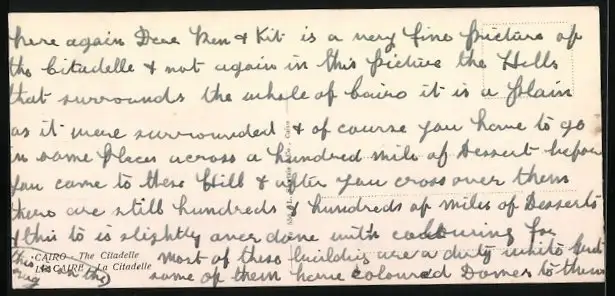 here again Dear Ken & Kit is a very fine picture of
the Citadelle & not again in this picture the Hills
that surrounds the whole of Cairo it is a plain
as it were surrounded & of course you have to go
in some places across a hundred mils of Dessert before
you come to these Hill & after you cross over them
there are still hundreds & hundreds of miles of Desserts
& this to is slightly over done with colouring for
most of these buildings are a dirty white but
some of them have coloured Domes to them
CAIRO - The Citadelle
LE CAIRE - La Citadelle
this is on the